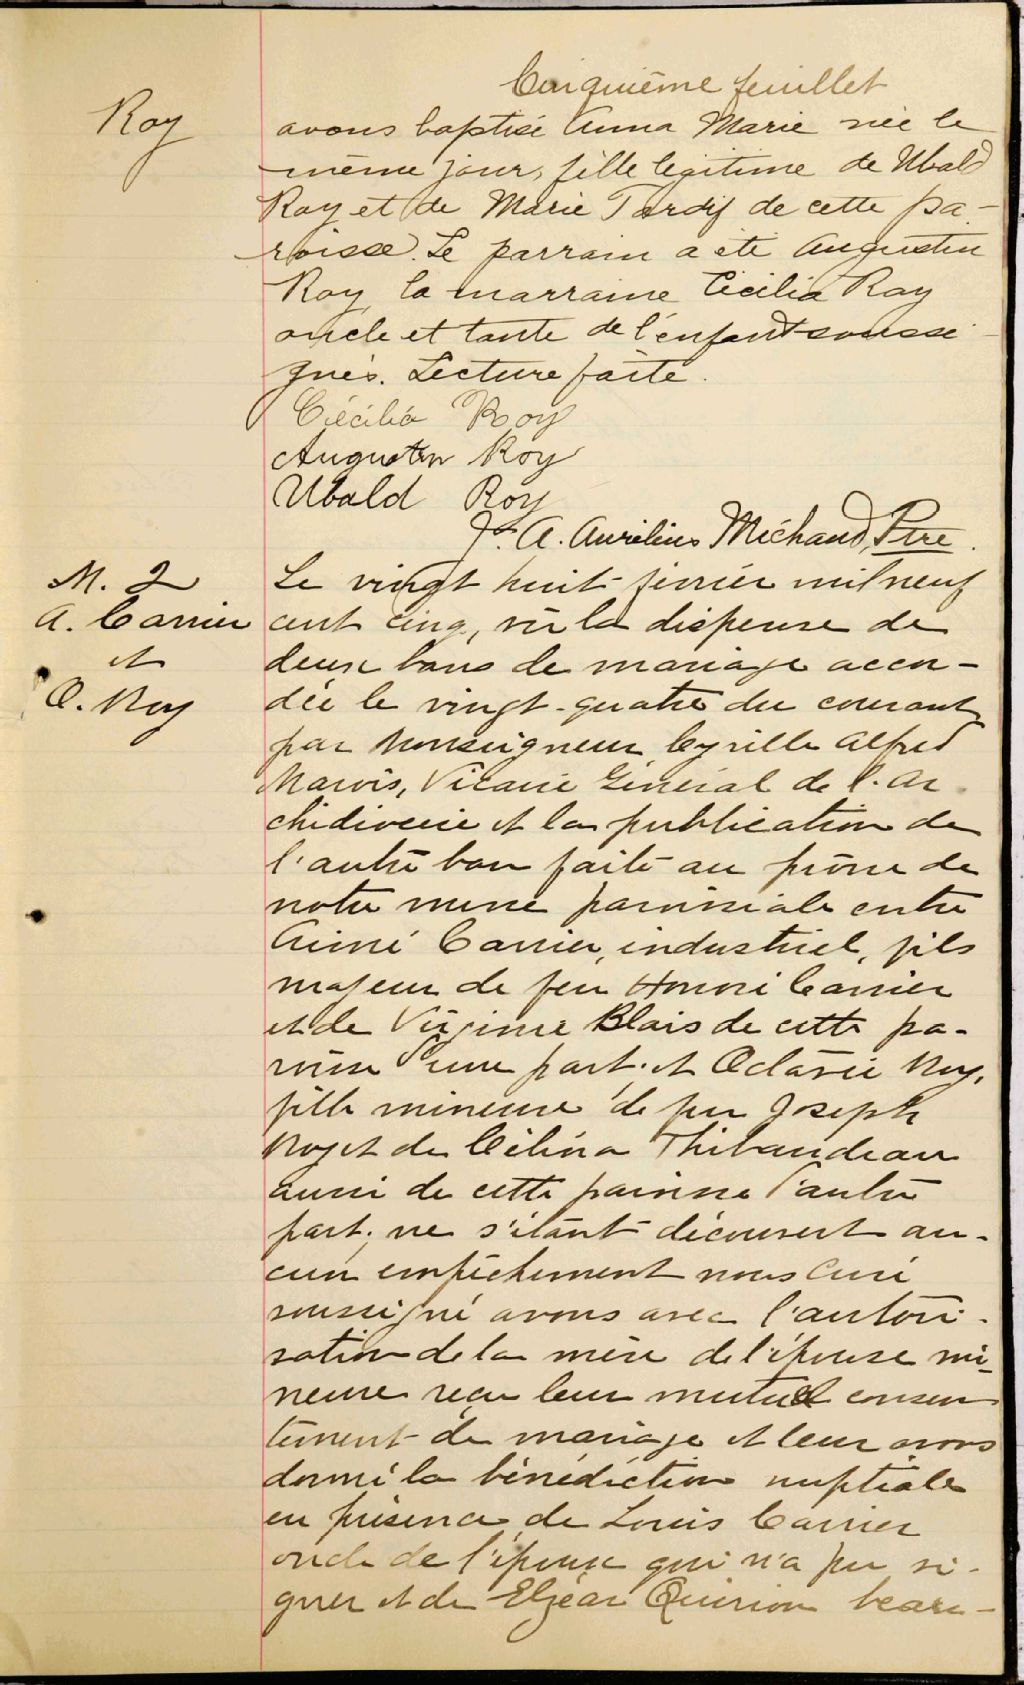 Cinquième feuillet
Roy
avons baptisé Anna Marie née le
même jour, fille légitime de Ubald
Roy et de Marie Tardif de cette pa-
roisse. Le parrain a été Augustin
Roy la marraine Cécilia Roy
oncle et tante de l'enfant soussi-
gnés. Lecture faite.
Cécilia Roy
Augustin Roy
Ubald Roy
Js. A. Aurélius Michaud, Ptre.
M. 2
A. Carrier
et
O. Roy
Le vingt huit février mil neuf
cent cinq, vu la dispense de
deux bans de mariage accor-
dée le vingt-quatre du courant
par Monseigneur Cyrille Alfred
Marois, Vicaire Général de l'Ar
chidiocèse et la publication de
l'autre ban faite au prône de
notre messe paroissiale entre
Aimé Carrier, industriel, fils
majeur de feu Honoré Carrier
et de Virginie Blais de cette pa-
roisse d'une part; et Octavie Roy,
fille mineure de feu Joseph
Roy et de Célina Thibaudeau
aussi de cette paroisse d'autre
part; ne s'étant découvert au-
cun empêchement nous Curé
soussigné avons avec l'autori-
sation de la mère de l'épouse mi-
neure reçu leur mutuel consen
tement de mariage et leur avons
donné la bénédiction nuptiale
en présence de Louis Carrier
oncle de l'époux qui n'a pu si-
gner et de Elzéar Quirion beau-